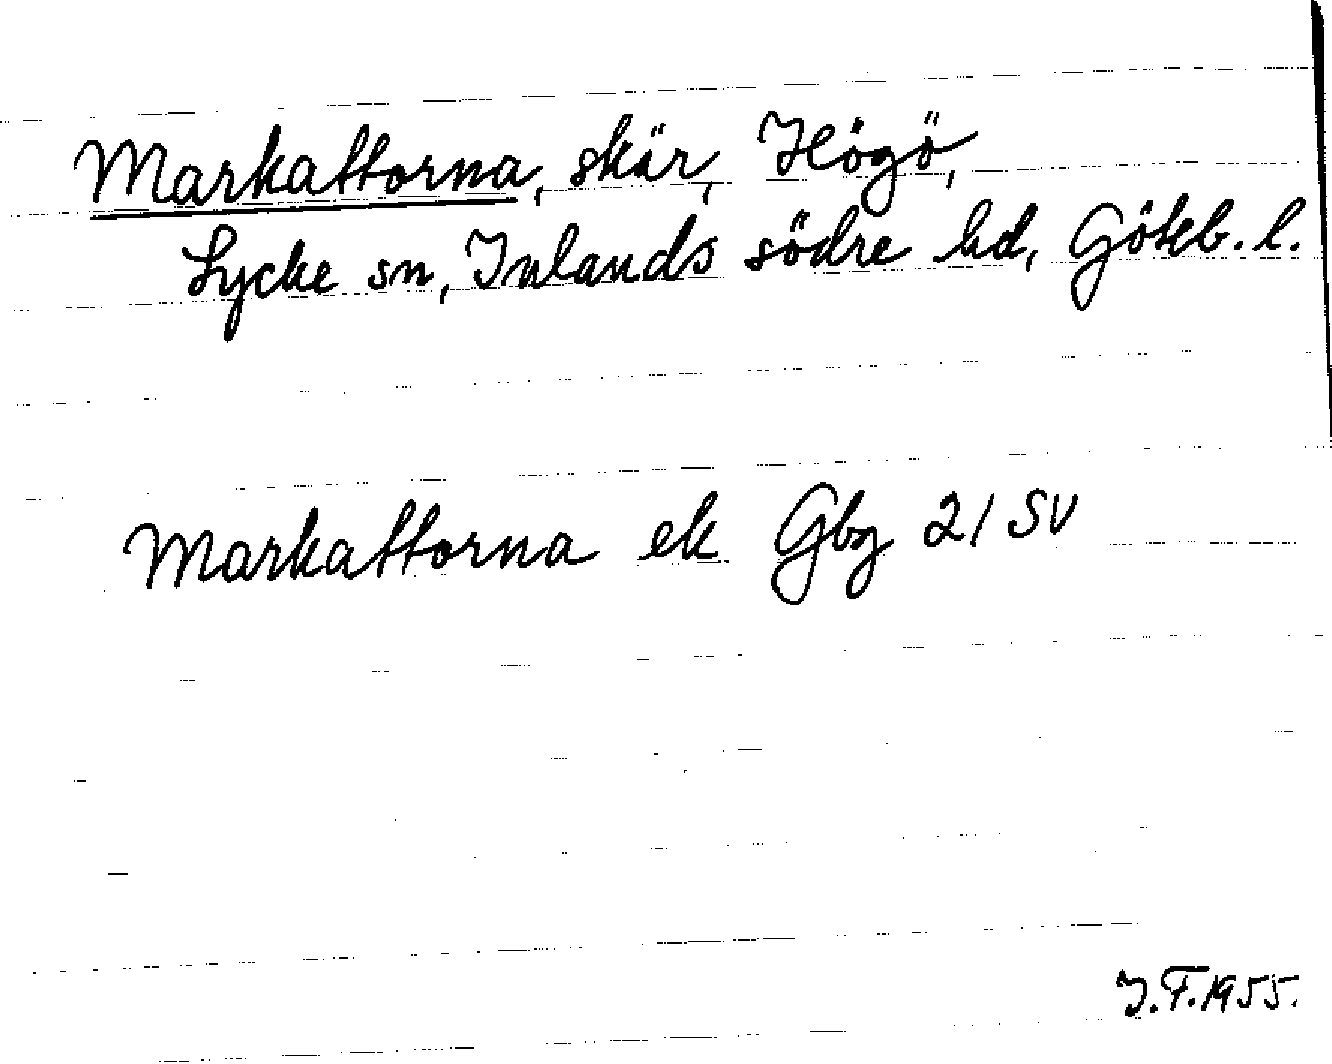 Markattorna, skär, Högö,
Lycke sn, Inlands södre hd, Göteb. l.
Markattorna ek Gbg 21 SV
J.F.1955.